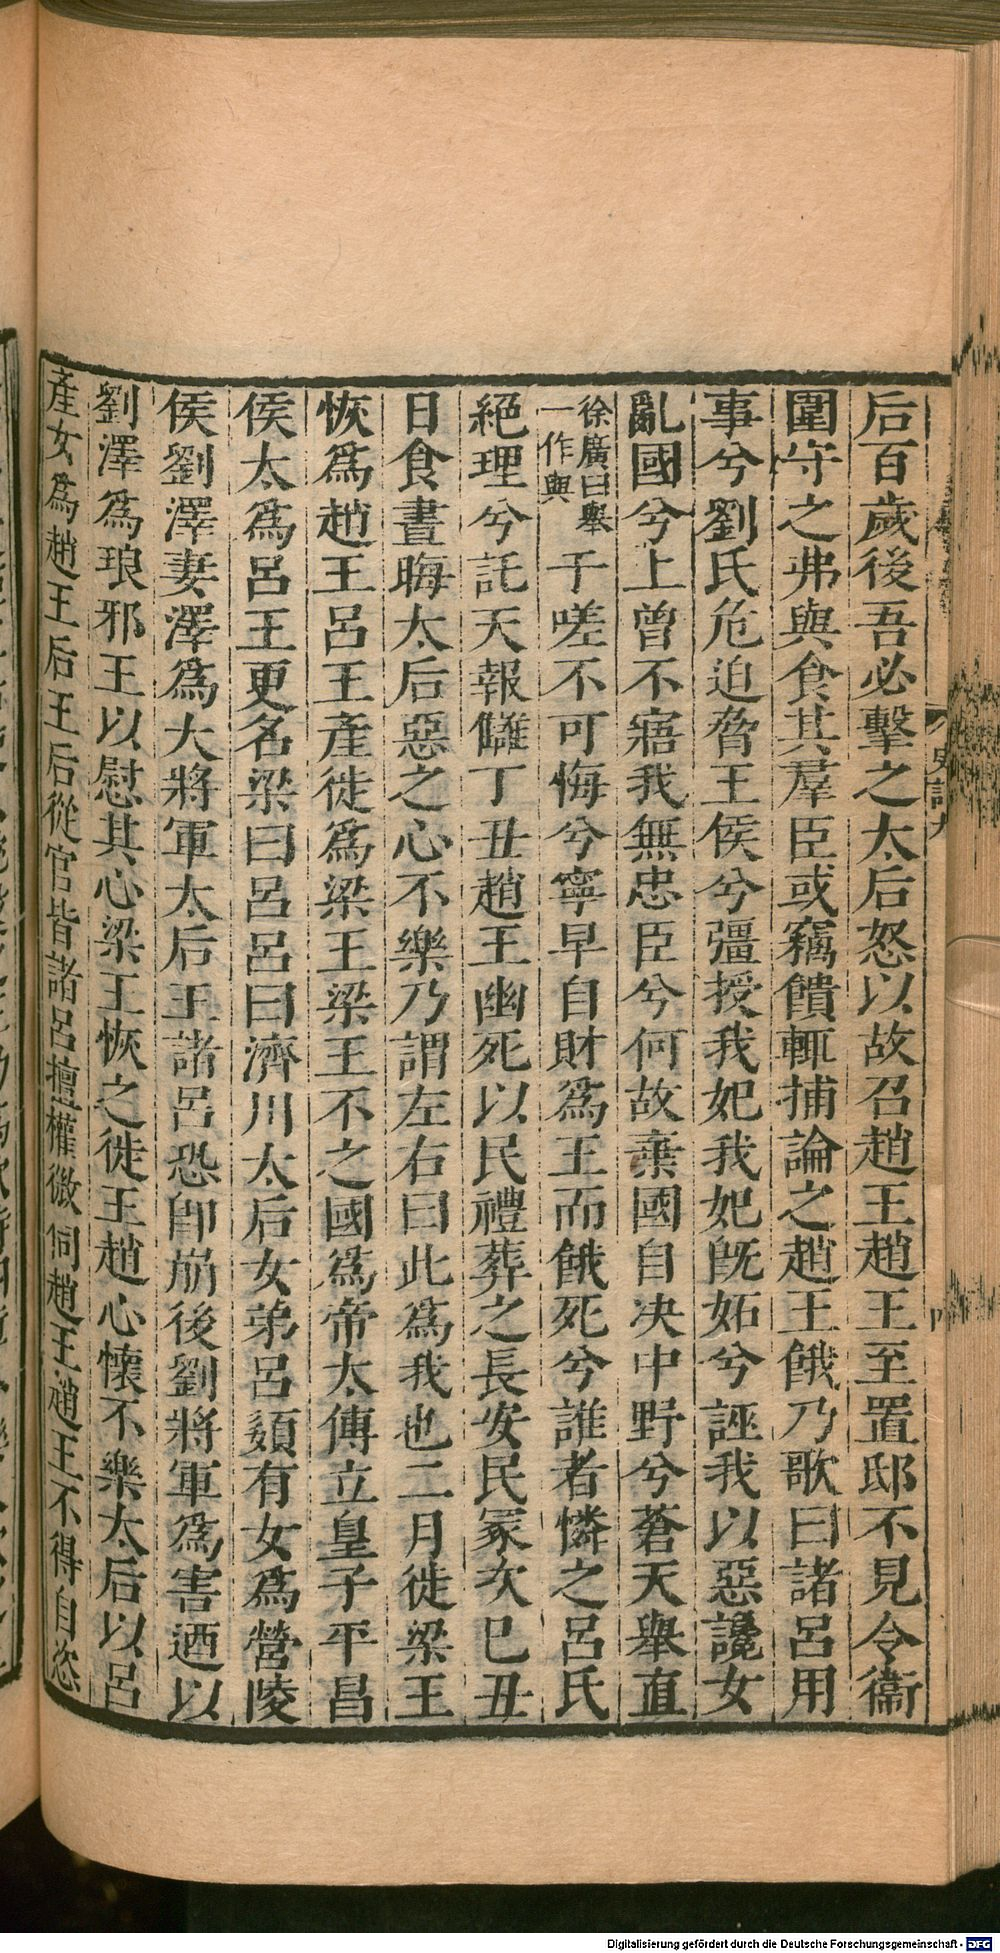 后百歲後吾必擊之太后怒以故召趙王趙王至置邸不見令衞
圍守之弗與食其羣臣或竊饋輒捕論之趙王餓乃歌曰諸呂用
事兮劉氏危迫脅王侯兮彊授我妃我妃旣妬兮誣我以惡讒女
亂國兮上曾不寤我無忠臣兮何故棄國自決中野兮蒼天舉直
徐廣曰舉
一作與
于嗟不可悔兮寧早自財爲王而餓死兮誰者憐之呂氏
絕理兮託天報讎丁丑趙王幽死以民禮葬之長安民冢次巳丑
日食晝晦太后惡之心不樂乃謂左右曰此爲我也二月徙梁王
恢爲趙王呂王產徙爲梁王梁王不之國爲帝太傅立皇子平昌
侯太爲呂王更名梁曰呂呂曰濟川太后女弟呂嬃有女爲營陵
侯劉澤妻澤爲大將軍太后王諸呂恐卽崩後劉將軍爲害迺以
劉澤爲琅邪王以慰其心梁王恢之徙王趙心懷不樂太后以呂
產女爲趙王后王后從官皆諸呂擅權微伺趙王趙王不得自恣
史記九
Digitalisierung gefördert durch die Deutsche Forschungsgemeinschaft - DFG